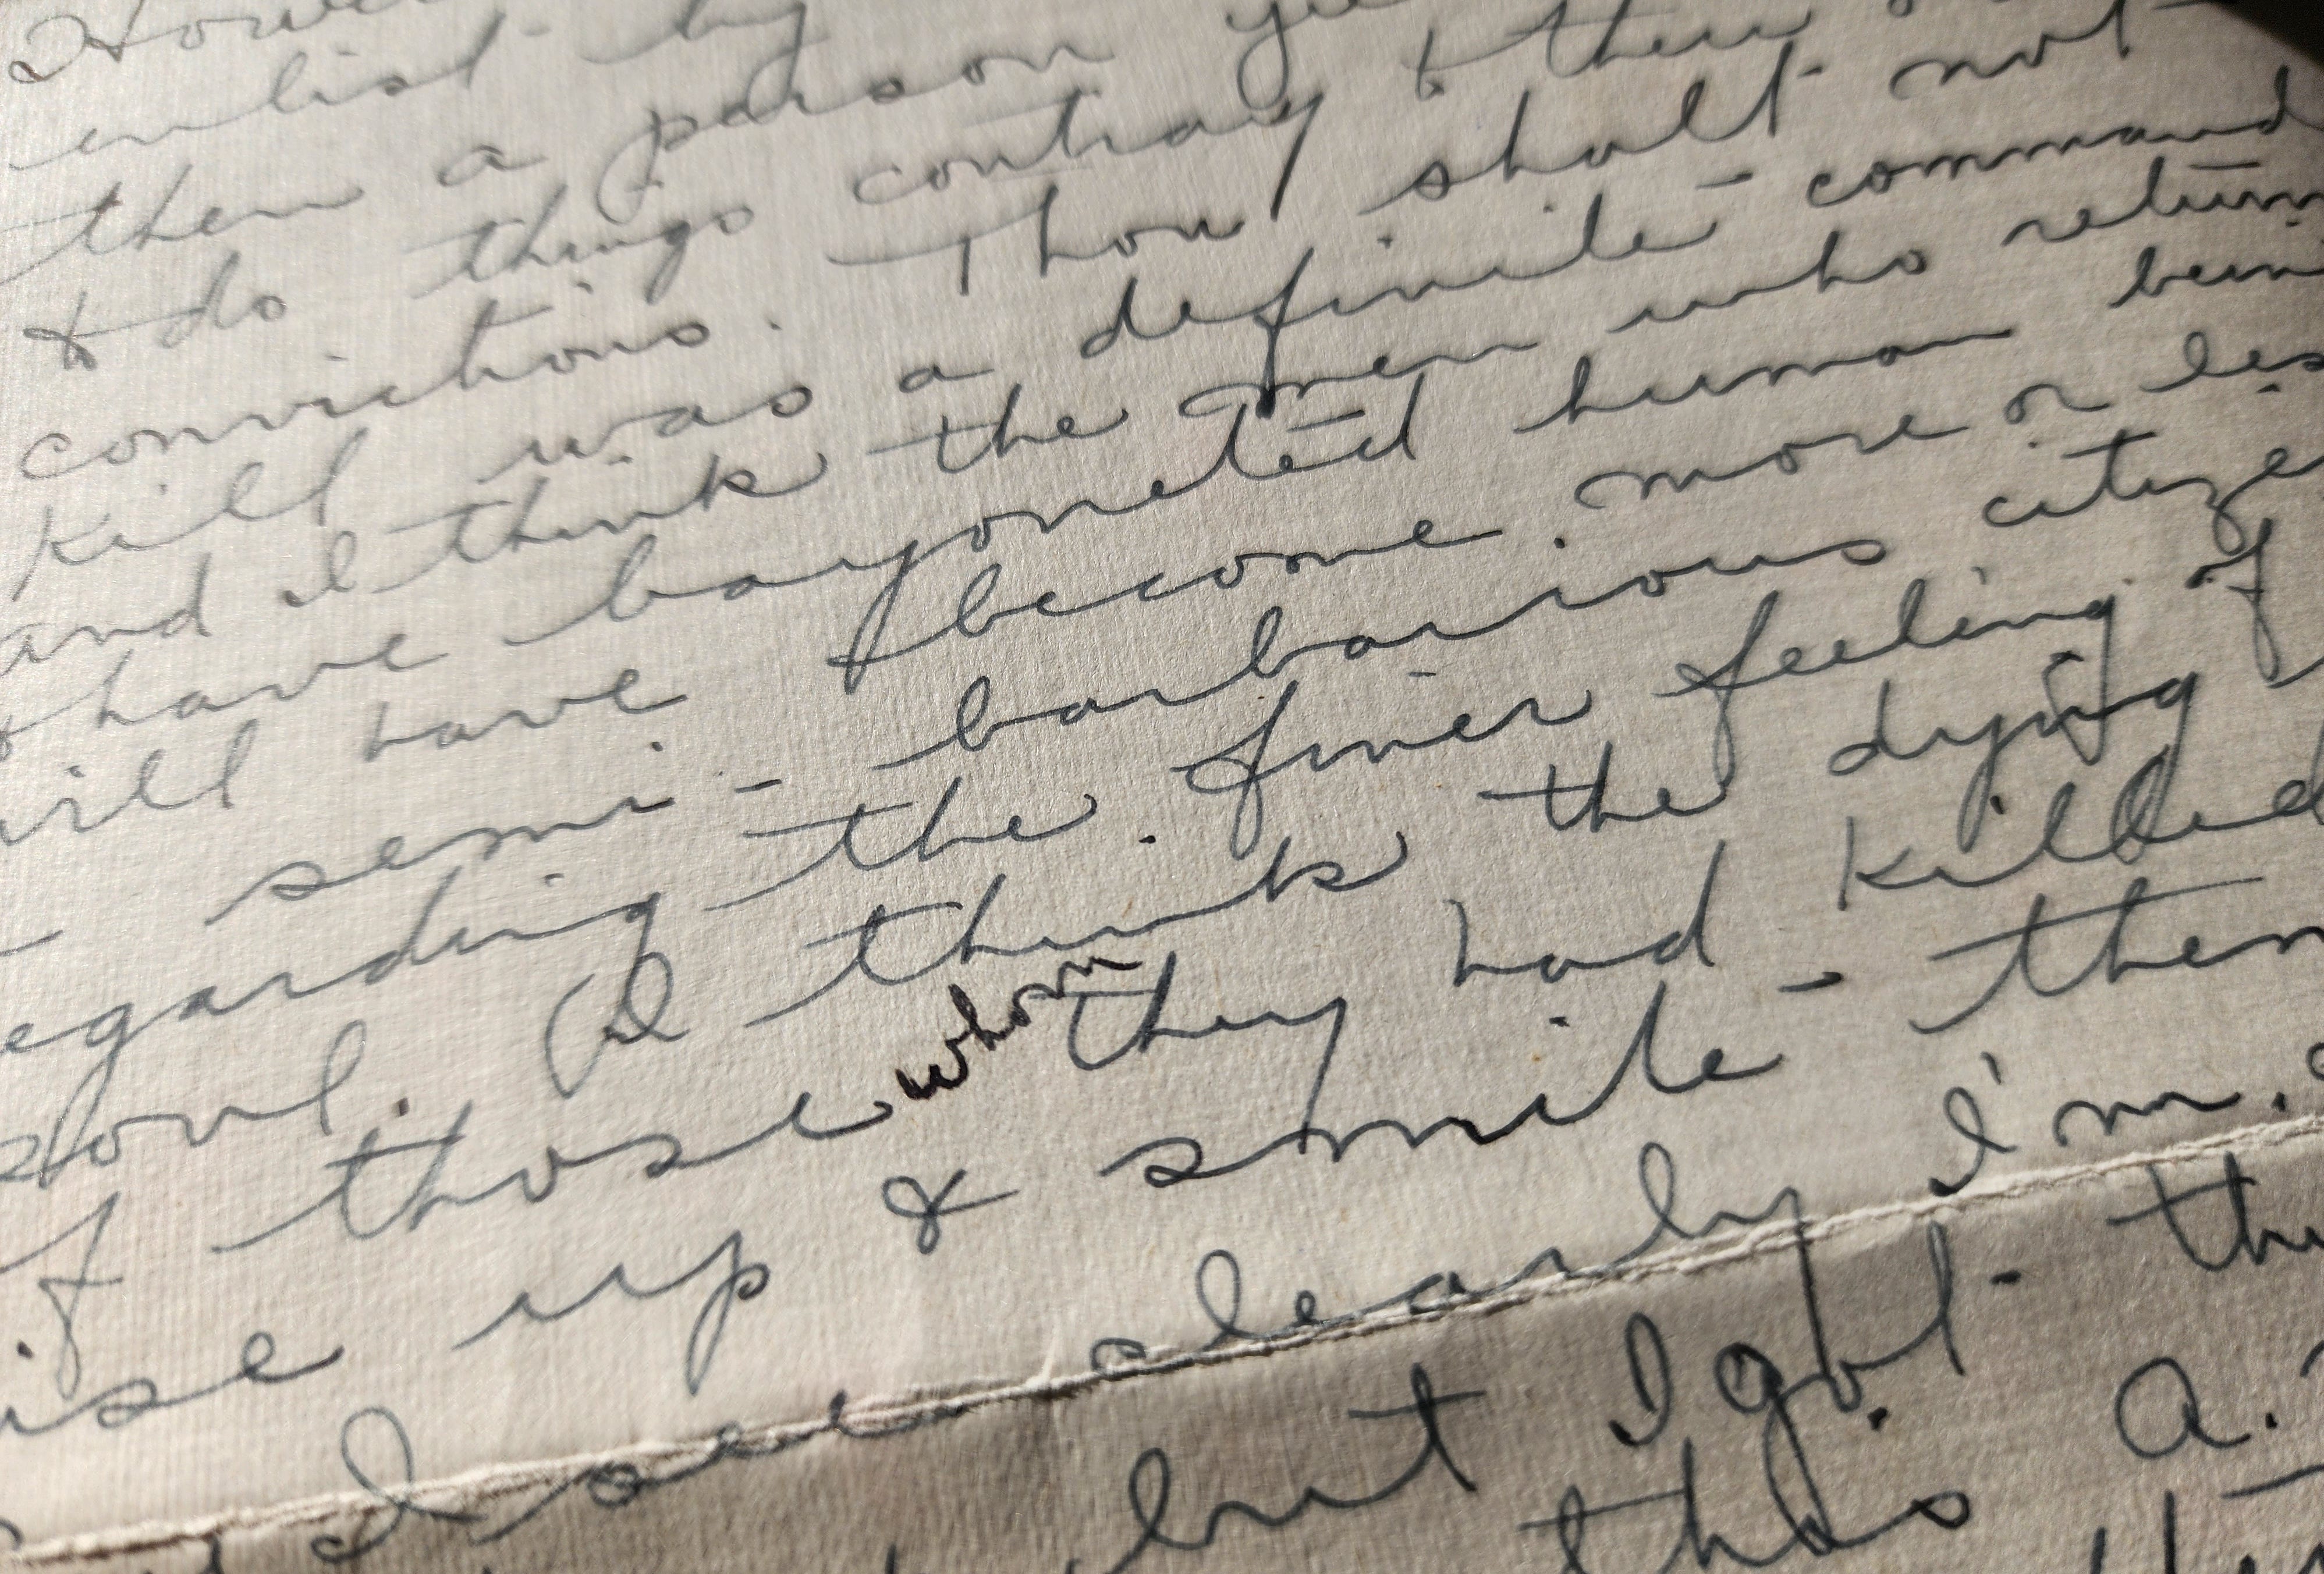 enlist by
then a parson
& do things contray to their
convictions. Thou shalt not
kill was a definite command
and I think the men who return
& have bayoneted human bein
will have become more or les
semi-barbarious citize
egarding the finer feeling of
soul. (I think the dying
of those whom they had killed
ise up & smile - then
I see clearly I'm
but I got the
this A.